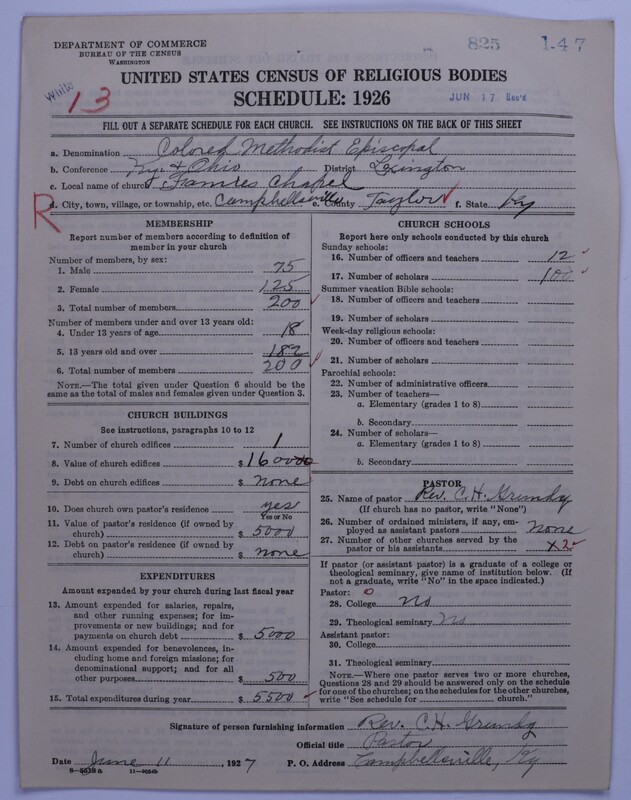 DEPARTMENT OF COMMERCE
BUREAU OF THE CENSUS
WASHINGTON
825 1-47
White
13
UNITED STATES CENSUS OF RELIGIOUS BODIES
SCHEDULE: 1926
JUN 17 Rec'd
FILL OUT A SEPARATE SCHEDULE FOR EACH CHURCH. SEE INSTRUCTIONS ON THE BACK OF THIS SHEET
a. Denomination Colored Methodist Episcopal
b. Conference Ky. & Ohio District Lexington
c. Local name of church Chapel
R d. City, town, village, or township, etc. Campbellsville e. County Taylor f. State Ky
MEMBERSHIP
Report number of members according to definition of
member in your church
Number of members, by sex:
1. Male 75
2. Female 125
3. Total number of members 200
Number of members under and over 13 years old:
4. Under 13 years of age 18
5. 13 years old and over 182
6. Total number of members 200
NOTE.—The total given under Question 6 should be
same as the total of males and females given under Question 3.
CHURCH BUILDINGS
See instructions, paragraphs 10 to 12
7. Number of church edifices 1
8. Value of church edifices $
9. Debt on church edifices $ none
10. Does church own pastor's residence yes
Yes or No
11. Value of pastor's residence (if owned by
church) $ 5000
12. Debt on pastor's residence (if owned by
church) $ none
EXPENDITURES
Amount expended by your church during last fiscal year
13. Amount expended for salaries, repairs,
and other running expenses; for im-
provements or new buildings; and for
payments on church debt $ 5000
14. Amount expended for benevolences, in-
cluding home and foreign missions; for
denominational support; and for all
other purposes $ 500
15. Total expenditures during year $ 5500
CHURCH SCHOOLS
Report here only schools conducted by this church
Sunday schools:
16. Number of officers and teachers 12
17. Number of scholars 100
Summer vacation Bible schools:
18. Number of officers and teachers
19. Number of scholars
Week-day religious schools:
20. Number of officers and teachers
21. Number of scholars
Parochial schools:
22. Number of administrative officers
23. Number of teachers—
a. Elementary (grades 1 to 8)
b. Secondary
24. Number of scholars—
a. Elementary (grades 1 to 8)
b. Secondary
PASTOR
25. Name of pastor Rev. C. H. Grundy
(If church has no pastor, write "None")
26. Number of ordained ministers, if any, em-
ployed as assistant pastors none
27. Number of other churches served by the
pastor or his assistants x2
If pastor (or assistant pastor) is a graduate of a college or
theological seminary, give name of institution below. (If
not a graduate, write "No" in the space indicated.)
Pastor: 0
28. College No
29. Theological seminary No
Assistant pastor:
30. College
31. Theological seminary
NOTE.—Where one pastor serves two or more churches,
Questions 28 and 29 should be answered only on the schedule
for one of the churches; on the schedules for the other churches,
write "See schedule for church."
Signature of person furnishing information Rev. C. H. Grundy
Official title Pastor
Date June 11, 1927 P. O. Address Campbellsville, Ky